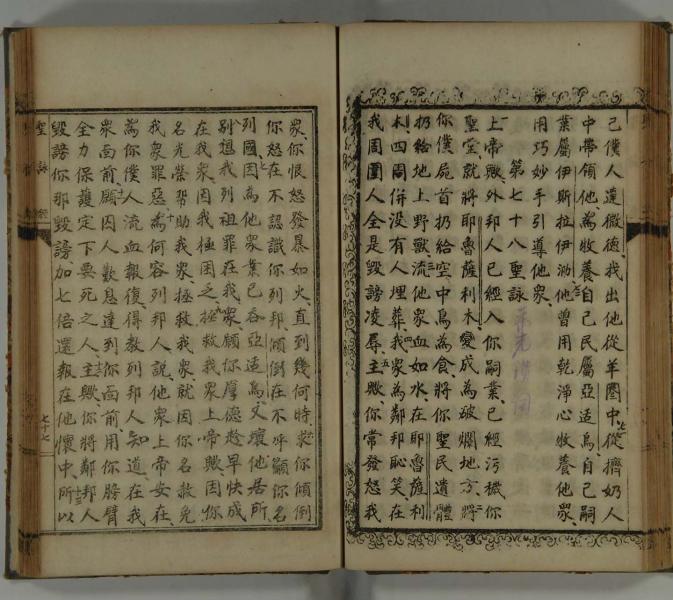 己僕人達微德找出他從羊圈中從擠奶人
中帶領他為牧養自己民屬亞适烏自己嗣
業屬伊斯拉伊泐他曾用乾淨心牧養他眾
用巧妙手引導他眾
第七十八聖詠
上帝歟外邦人已經入你嗣業已經污穢你
聖室就將耶魯薩利木變成為破爛地方將
你僕屍首扔給空中鳥為食將你聖民遺體
扔給地上野獸流他眾血如水在耶魯薩利
木四周併没有人埋葬我眾為鄰邦恥笑在
我周圍人全是毀謗凌辱主歟你常發怒我
眾你恨怒發暴如火直到幾何時求你傾倒
你怒在不認識你列邦傾倒在不呼籲你名
列國因為他眾業已吞亞适烏又壞他居所
别想我列祖罪在我眾願你厚德趁早快成
在我眾因我極困乏拯救我眾上帝歟因你
名光榮帮助我眾拯救我眾就因你名赦免
我眾罪惡為何容列邦人說他眾上帝安在
為你僕人流血報復得教列邦人知道在我
眾面前願囚人歎息達到你面前用你膀臂
全力保護定下要死之人主歟你將鄰邦人
毀謗你那毀謗加七倍還報在他懷中所以
聖詠
七十七